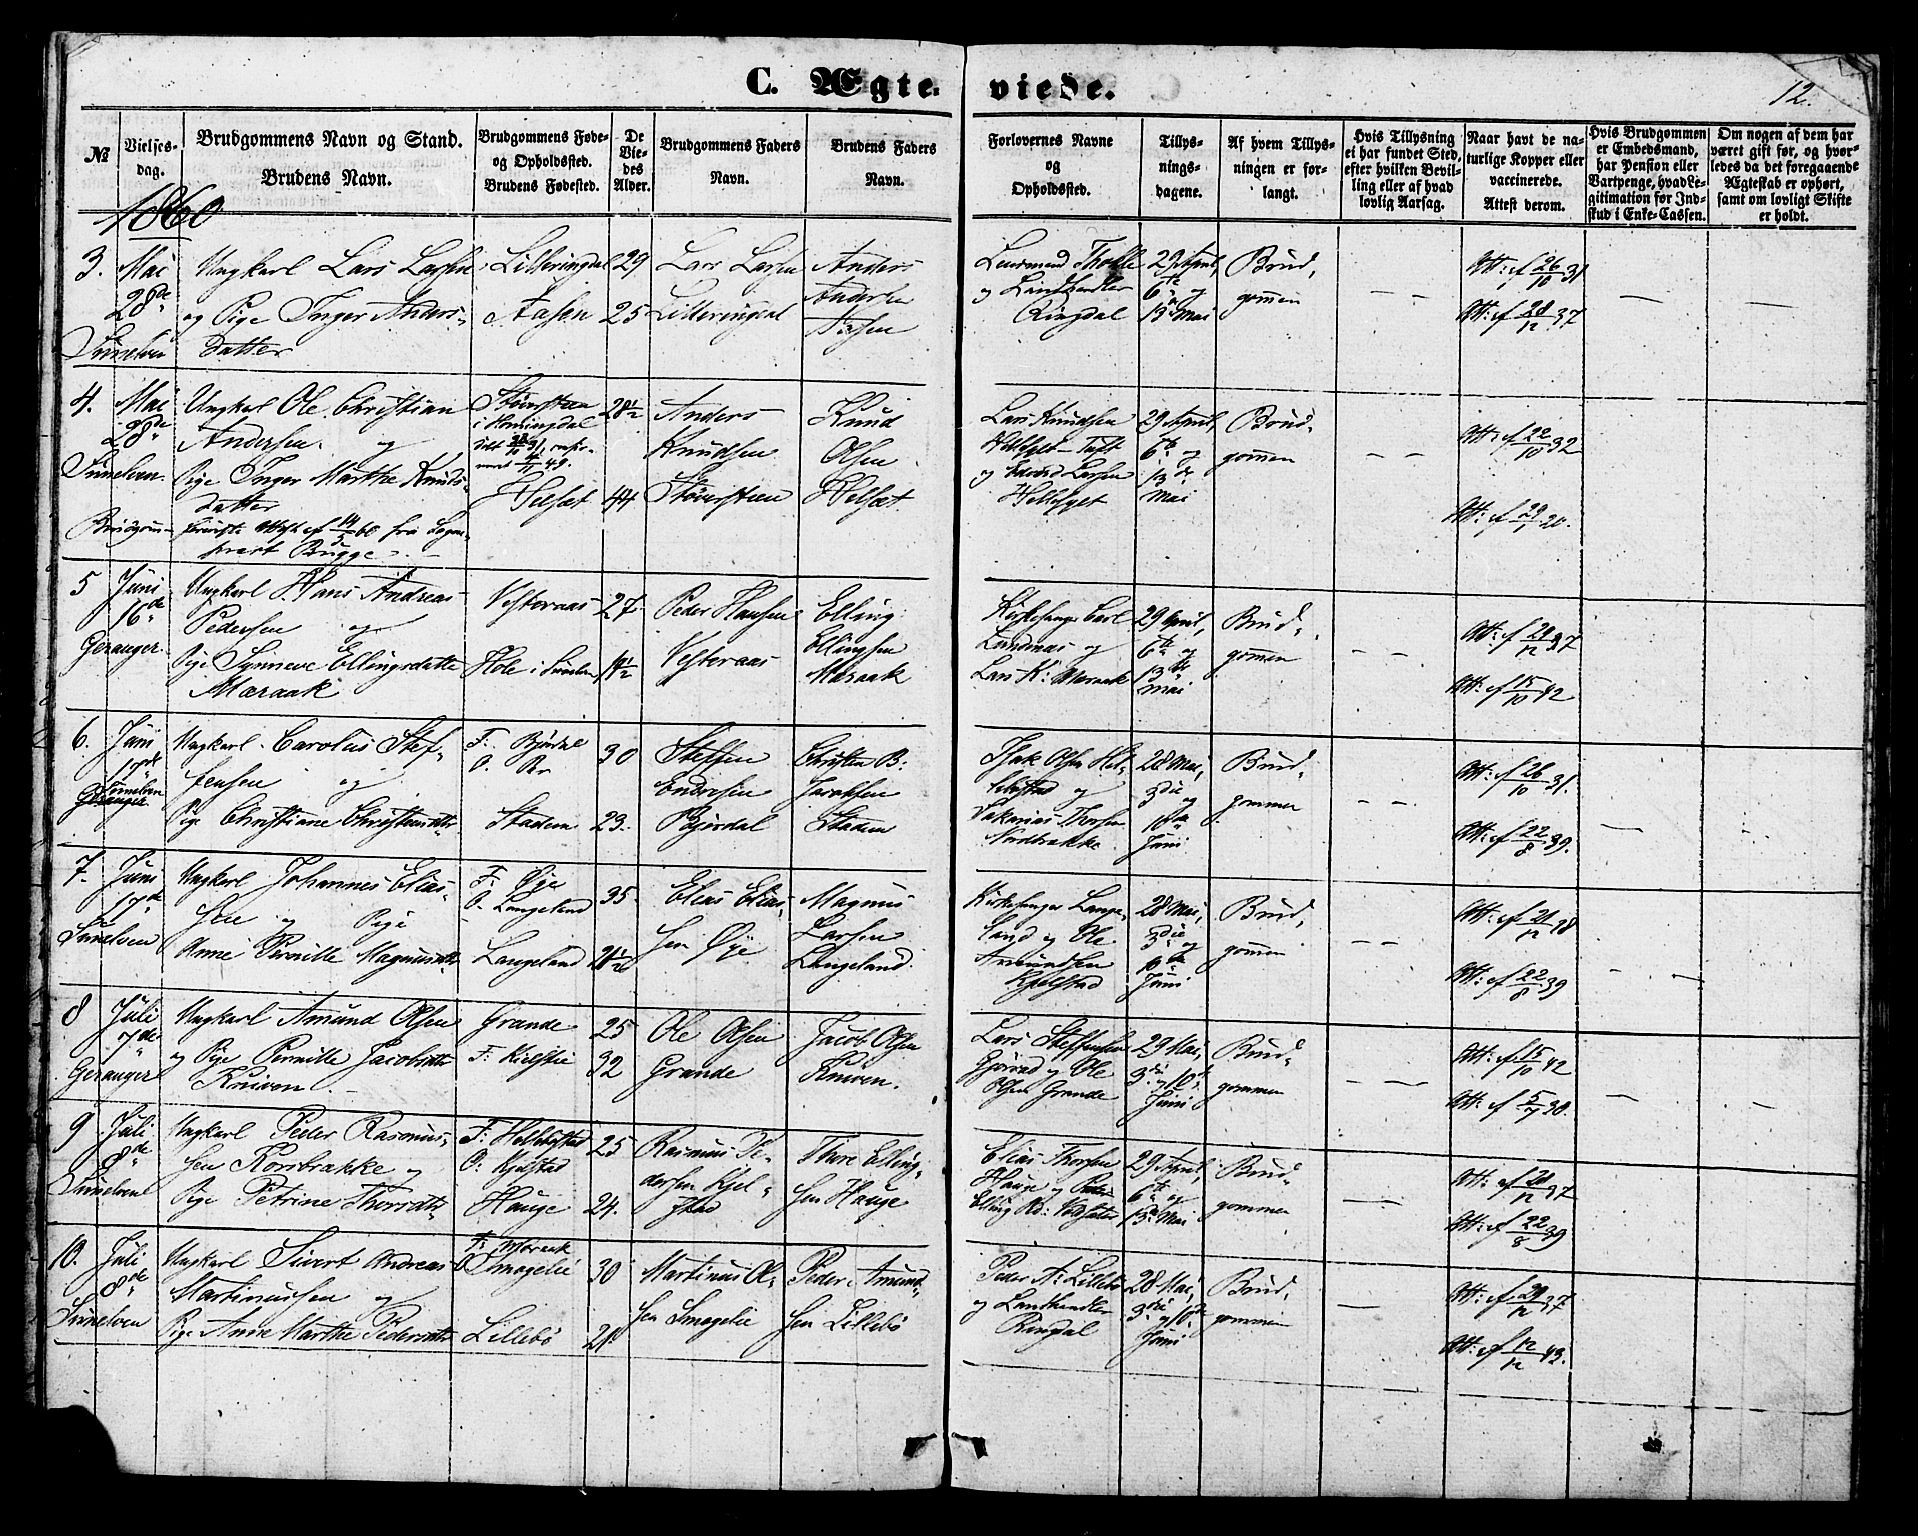 C. Ægte viede.
12.
№
Vielses-
dag.
Brudgommens Navn og Stand.
Brudens Navn.
Brudgommens Føde-
og Opholdssted.
Brudens Fødested.
De
Vie-
des
Alder.
Brudgommens Faders
Navn.
Brudens Faders
Navn.
Forlovernes Navne
og
Opholdssted.
Tillys-
nings-
dagene.
Af hvem Tillys-
ningen er for-
langt.
Hvis Tillysning
ei har fundet Sted,
efter hvilken Bevil-
ling eller af hvad
lovlig Aarsag.
Naar havt de na-
turlige Kopper eller
vaccinerede.
Attest derom.
Hvis Brudgommen
er Embedsmand,
har Pension eller
Vartpenge, hvad Le-
gitimation for Ind-
skud i Enke-Cassen.
Om nogen af dem har
været gift før, og hvor-
ledes da det foregaaende
Ægteskab er ophørt,
samt om lovligt Skifte
er holdt.
1860
3.
Mai
28de
Sunelven
Ungkarl Lars Larsen
og Pige Inger Anders-
datter
Litleringdal
Aasen
29
25
Lars Larsen
Litleringdal
Anders
Andersen
Aasen
Lensmand Tholle
og Landhandler
Ringdal
29 April,
6te og
13de Mai
Brud-
gommen
Att: af 26/10 31
Att: af 28/12 37
4.
Mai
28de
Sunelven
Ungkarl Ole Christian
Andersen og
Pige Inger Marthe Knuds-
datter
Brudgom-
fra Sogne-
præst Brügge
i Horningdal
Helsæt
28½
44
Anders
Knudsen
Knud
Olsen
Helsæt
Lars Knudsen
og Edvard Larsen
Hellesyet
29 April,
6te og
13de
Mai
Brud-
gommen
Att: af 22/10 32
Att: af 29/1 20.
5
Juni
16de
Geranger
Ungkarl Hans Andreas
Pedersen og
Pige Synneve Ellingsdatter
Maraak
Vesteraas
Hole i Sunelven
27
Peder Hansen
Vesteraas
Elling
Ellingsen
Maraak
Kirkesanger Carl
Lundanæs og
Lars K: Maraak
29 April,
6te og
13de
Mai
Brud-
gommen
Att: af 28/12 37
Att: af 15/10 42
6.
Juni
17de
Sunelven
Geranger
Ungkarl Carolus Stef-
fensen og
Pige Christiane Christensdttr
F:
O.
Stadem
30
23.
Steffen
Endresen
Bjørdal
Christen B.
Jacobsen
Stadem
Isak Olsen Hel-
lebstad og
Zakarias Thorsen
28 Mai,
3die og
10de
Juni
Brud-
gommen
Att: af 26/10 31.
Att: af 22/8 39.
7.
Juni
17de
Sunelven
Ungkarl Johannes Elias-
sen og Pige
Anne Pernille Magnusdttr
F: Øye
O. Langeland
Langeland
35
21½
Elias Elias-
sen Øye
Magnus
Larsen
Langeland.
Kirkesanger Lange-
land og Ole
Amundsen
Kjelstad
28 Mai,
3die og
10de
Juni
Brud-
gommen
Att: af 22/8 39
8
Juli
7de
Geranger
Ungkarl Amund Olsen
og Pige Pernille Jacobsdttr
Kniven
Grande
25
32
Ole Olsen
Grande
Jacob Olsen
Kniven.
Lars Steffensen
Gjørvad og Ole
Olsen Grande
29 Mai,
3die og 10de
Juni
Brud-
gommen
Att: af 15/10 42
Att: af
9
Juli
8de
Sunelven
Ungkarl Peder Rasmus-
sen Korsbrække og
Pige Petrine Thorsdttr
F: Hellebostad
O: Kjelstad
Hauge
25
24.
Rasmus Pe-
dersen Kjel-
stad
Thore Elling-
sen Hauge
Elias Thorsen
Hauge og
29 April,
6te og
13de Mai
Brud-
gommen
Att: af 28/12 37
Att: af 22/8 39
10.
Juli
8de
Sunelven
Ungkarl Sivert Andreas
Martinussen og
Pige Anne Marthe Pedersdttr
F: Maraak
O Smogelie
Lillebö
30
21.
Martinus Ol-
sen Smogelie
Peder Amund-
sen Lillebö
Peder A: Lillebö
og Landhandler
Ringdal
28 Mai,
3die og 10de
Juni
Brud-
gommen
Att: af 28/12 37
Att: af 12/12 43.